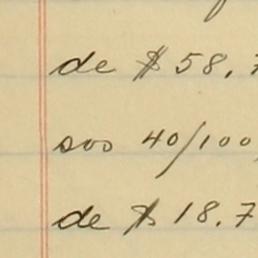 de $ 58.7
sos 40/100,
de $ 18.7